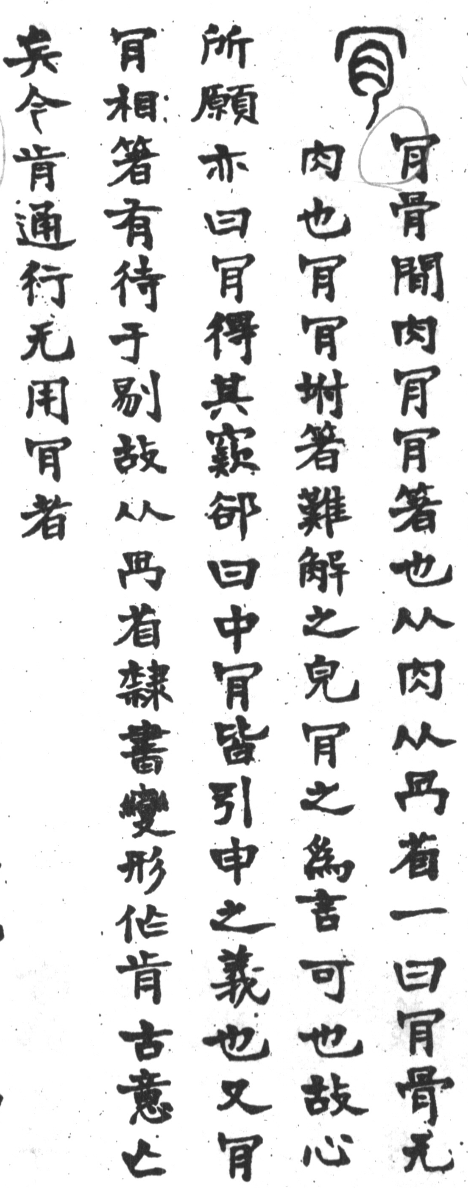 肎
肎骨間肉肎肎箸也从肉从冎省一曰肎骨无
肉也肎肎坿箸難解之皃肎之爲言可也故心
所願亦曰肎得其窾郤曰中肎皆引申之義也又肎
肎相箸有待于剔故从冎省隸書變形作肯古意亡
矣今肯通行无用肎者